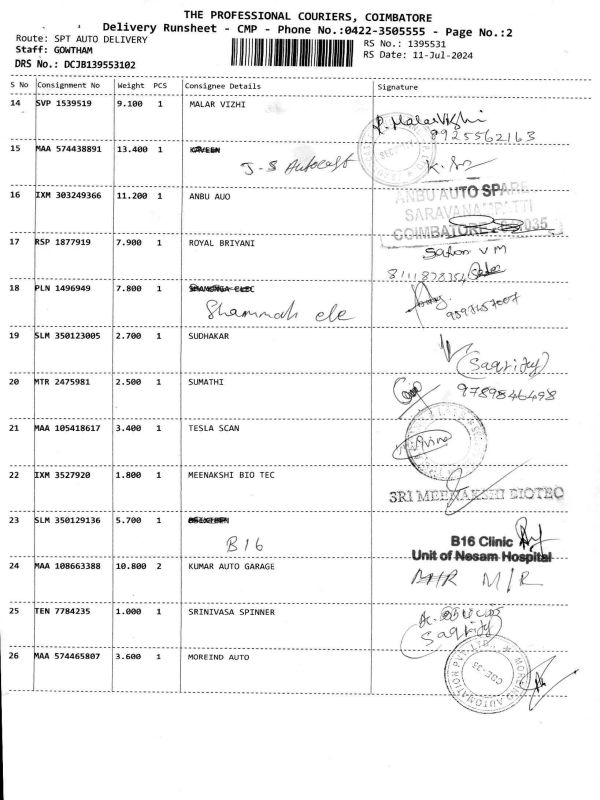 THE PROFESSIONAL COURIERS, COIMBATORE
Delivery Runsheet - CMP - Phone No.:0422-3505555 - Page No.:2
Route: SPT AUTO DELIVERY
RS No.: 1395531
Staff: GOWTHAM
RS Date: 11-Jul-2024
DRS No.: DCJB139553102
S No Consignment No Weight PCS Consignee Details Signature
14 SVP 1539519 9.100 1 MALAR VIZHI
P. MalarVizhi
8925562163
15 MAA 574438891 13.400 1 KAVEEN
J-S Autocast
16 IXM 303249366 11.200 1 ANBU AUO
ANBU AUTO SPARE
SARAVANAMPATTI
COIMBATORE 035
17 RSP 1877919 7.900 1 ROYAL BRIYANI
VM
18 PLN 1496949 7.800 1
Shammah ele
19 SLM 350123005 2.700 1 SUDHAKAR
20 MTR 2475981 2.500 1 SUMATHI
9789846498
21 MAA 105418617 3.400 1 TESLA SCAN
22 IXM 3527920 1.800 1 MEENAKSHI BIO TEC
SRI MEENAKSHI BIOTEC
23 SLM 350129136 5.700 1
B16
B16 Clinic
Unit of Nesam Hospital
24 MAA 108663388 10.800 2 KUMAR AUTO GARAGE
M/R
25 TEN 7784235 1.000 1 SRINIVASA SPINNER
26 MAA 574465807 3.600 1 MOREIND AUTO
CBE-35